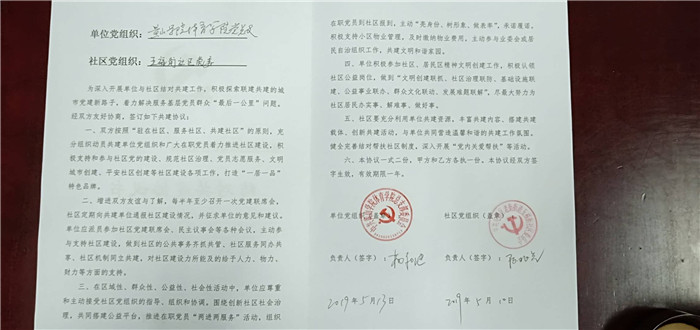 单位党组织：黄山学院体育学院党总支
社区党组织：
为深入开展单位与社区结对共建工作，积极探索联建共建的城
市党建新路子，着力解决服务基层党员群众“最后一公里”问题，
经双方友好协商，签订如下共建协议：
一、双方按照“驻在社区、服务社区、共建社区”的原则，充
分组织动员共建单位党组织和广大在职党员着力推进社区建设，积
极支持和参与社区党的建设、规范社区治理、党员志愿服务、文明
城市创建、平安社区创建等社区建设各项工作，打造“一居一品”
特色品牌。
二、增进双方友谊与了解，每半年至少召开一次党建联席会。
社区党期向共建单位通报社区建设情况，并征求单位的意见和建议。
单位应派员参加社区党建联席会、民主议事会等各种会议，主动参
与支持社区建设，做到社区的公共事务齐抓共管、社区服务同办共
享、社区机制同立共建，对社区建设力所能及的给予人力、物力、
财力等方面的支持。
三、在区域性、群众性、公益性、社会性活动中，单位应尊重
和主动接受社区党组织的指导、组织和协调。围绕创新社区社会治
理，共同搭建公益平台，推进在职党员“两进两服务”活动，组织
在职党员到社区报到，主动“亮身份、树形象、做表率”，承诺履诺。
积极支持小区物业管理，及时缴纳物业费用，主动参与业委会或居
民自治组织工作，共建文明和谐家园。
四、单位积极参加社区、居民区精神文明创建工作，积极认领
社区公益岗位，做到“文明创建联抓、社区治理联防、基础设施联
建、公益事业联办、群众文化联动、发展难题联解”，尽最大努力为
社区居民办实事、解难事、做好事。
五、社区要充分利用单位共建资源，丰富共建内容、搭建共建
载体、创新共建活动，与单位共同营造温馨和谐的共建工作氛围。
健全完善结对帮扶社区制度，深入开展“党内关爱帮扶”等活动。
六、本协议一式二份，甲方和乙方各执一份。本协议经双方签
字生效，有效期限一年。
单位党组织（盖章） 社区党组织（盖章）
负责人（签字）： 负责人（签字）：
2019年5月13日 2019年5月10日